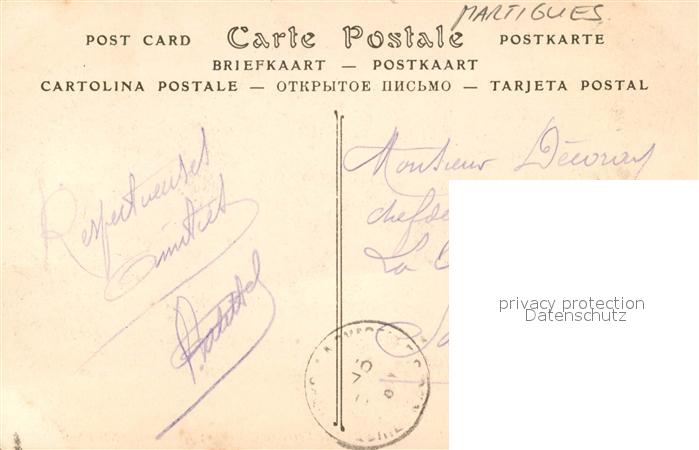 MARTIGUES
POST CARD Carte Postale POSTKARTE
BRIEFKAART — POSTKAART
CARTOLINA POSTALE — ОТКРЫТОЕ ПИСЬМО — TARJETA POSTAL
Respectueuses
Amitiés
Monsieur
chef de
La
privacy protection
Datenschutz